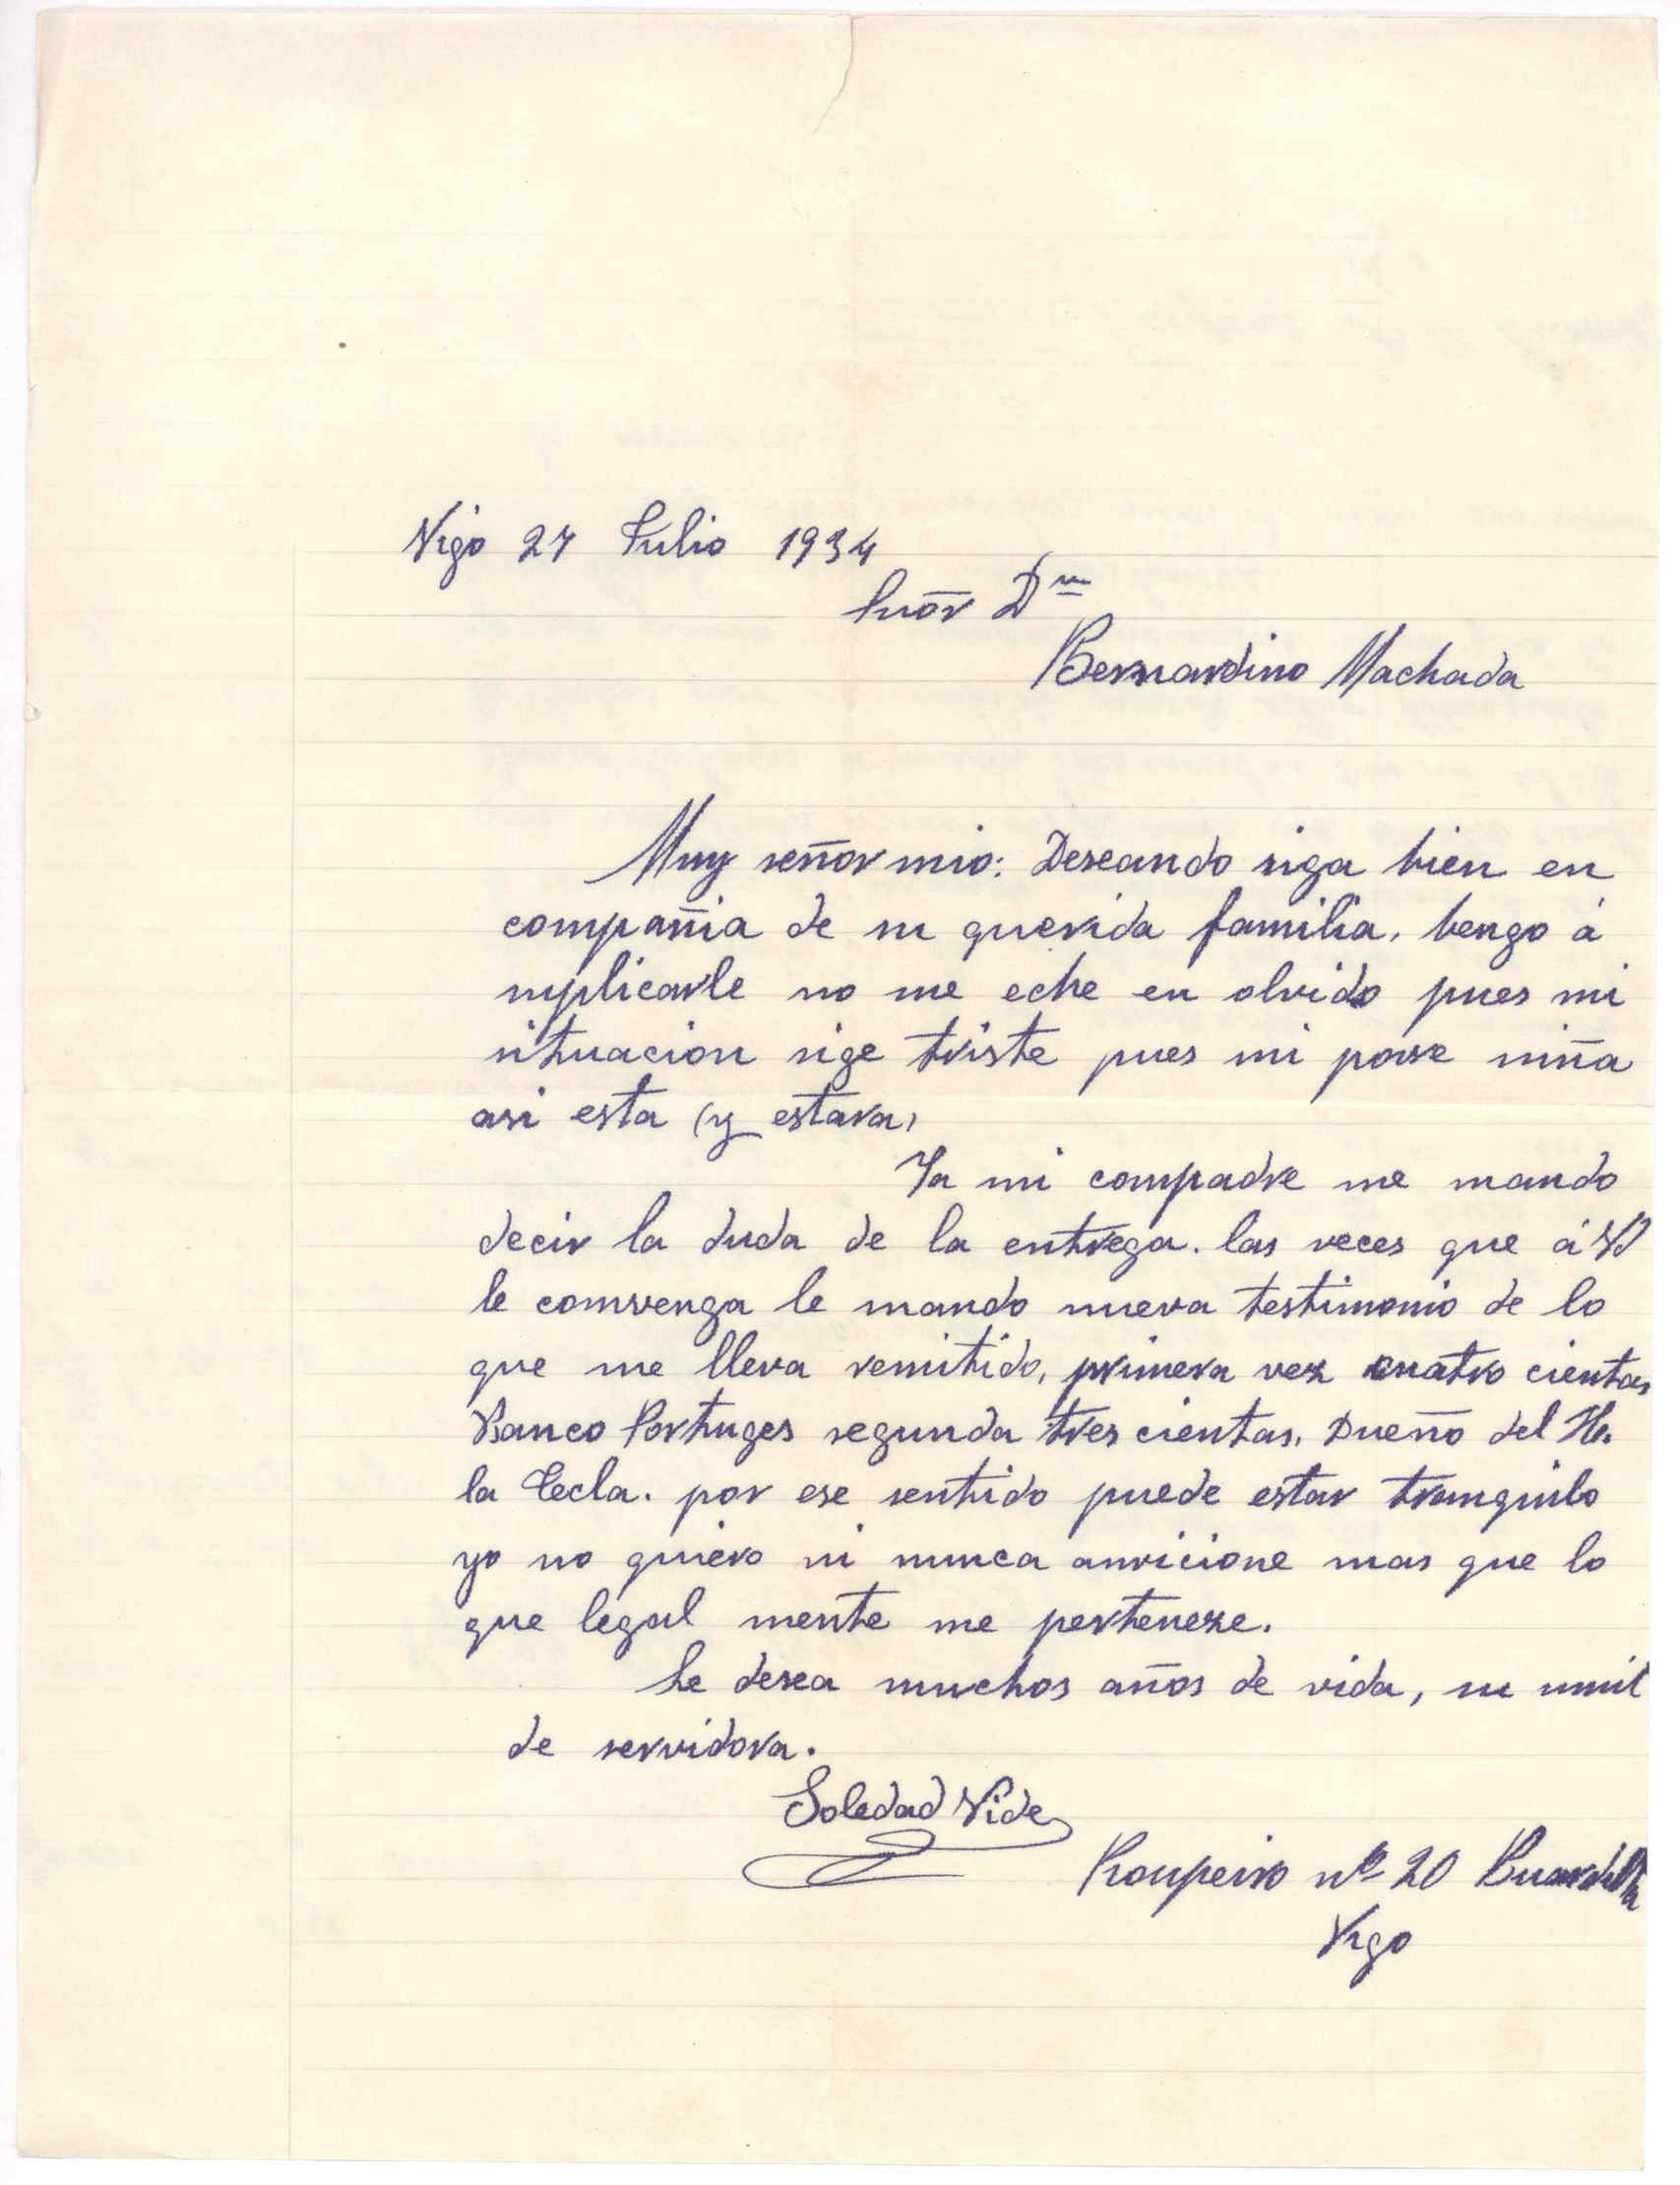 Vigo 27 Julio 1934
Snõr Dn
Bernardino Machada
Muy señor mio: Deseando siga bien en
compañia de su querida familia, bengo á
suplicarle no me eche en olvido pues mi
situacion sige triste pues mi povre niña
asi esta (y estava)
Ya mi compadre me mando
decir la duda de la entrega. las veces que á Vd
le comvenga le mando nueva testimonio de lo
que me lleva remitido, primera vez cuatro cientas
Banco Portuges segunda tres cientas, Dueño del H.
la Tecla. por ese sentido puede estar tranquilo
yo no quiero ni nunca anvicione mas que lo
que legal mente me perteneze.
Le desea muchos años de vida, su umil
de servidora.
Soledad Vide
Roupeiro nº 20 Buardilla
Vigo